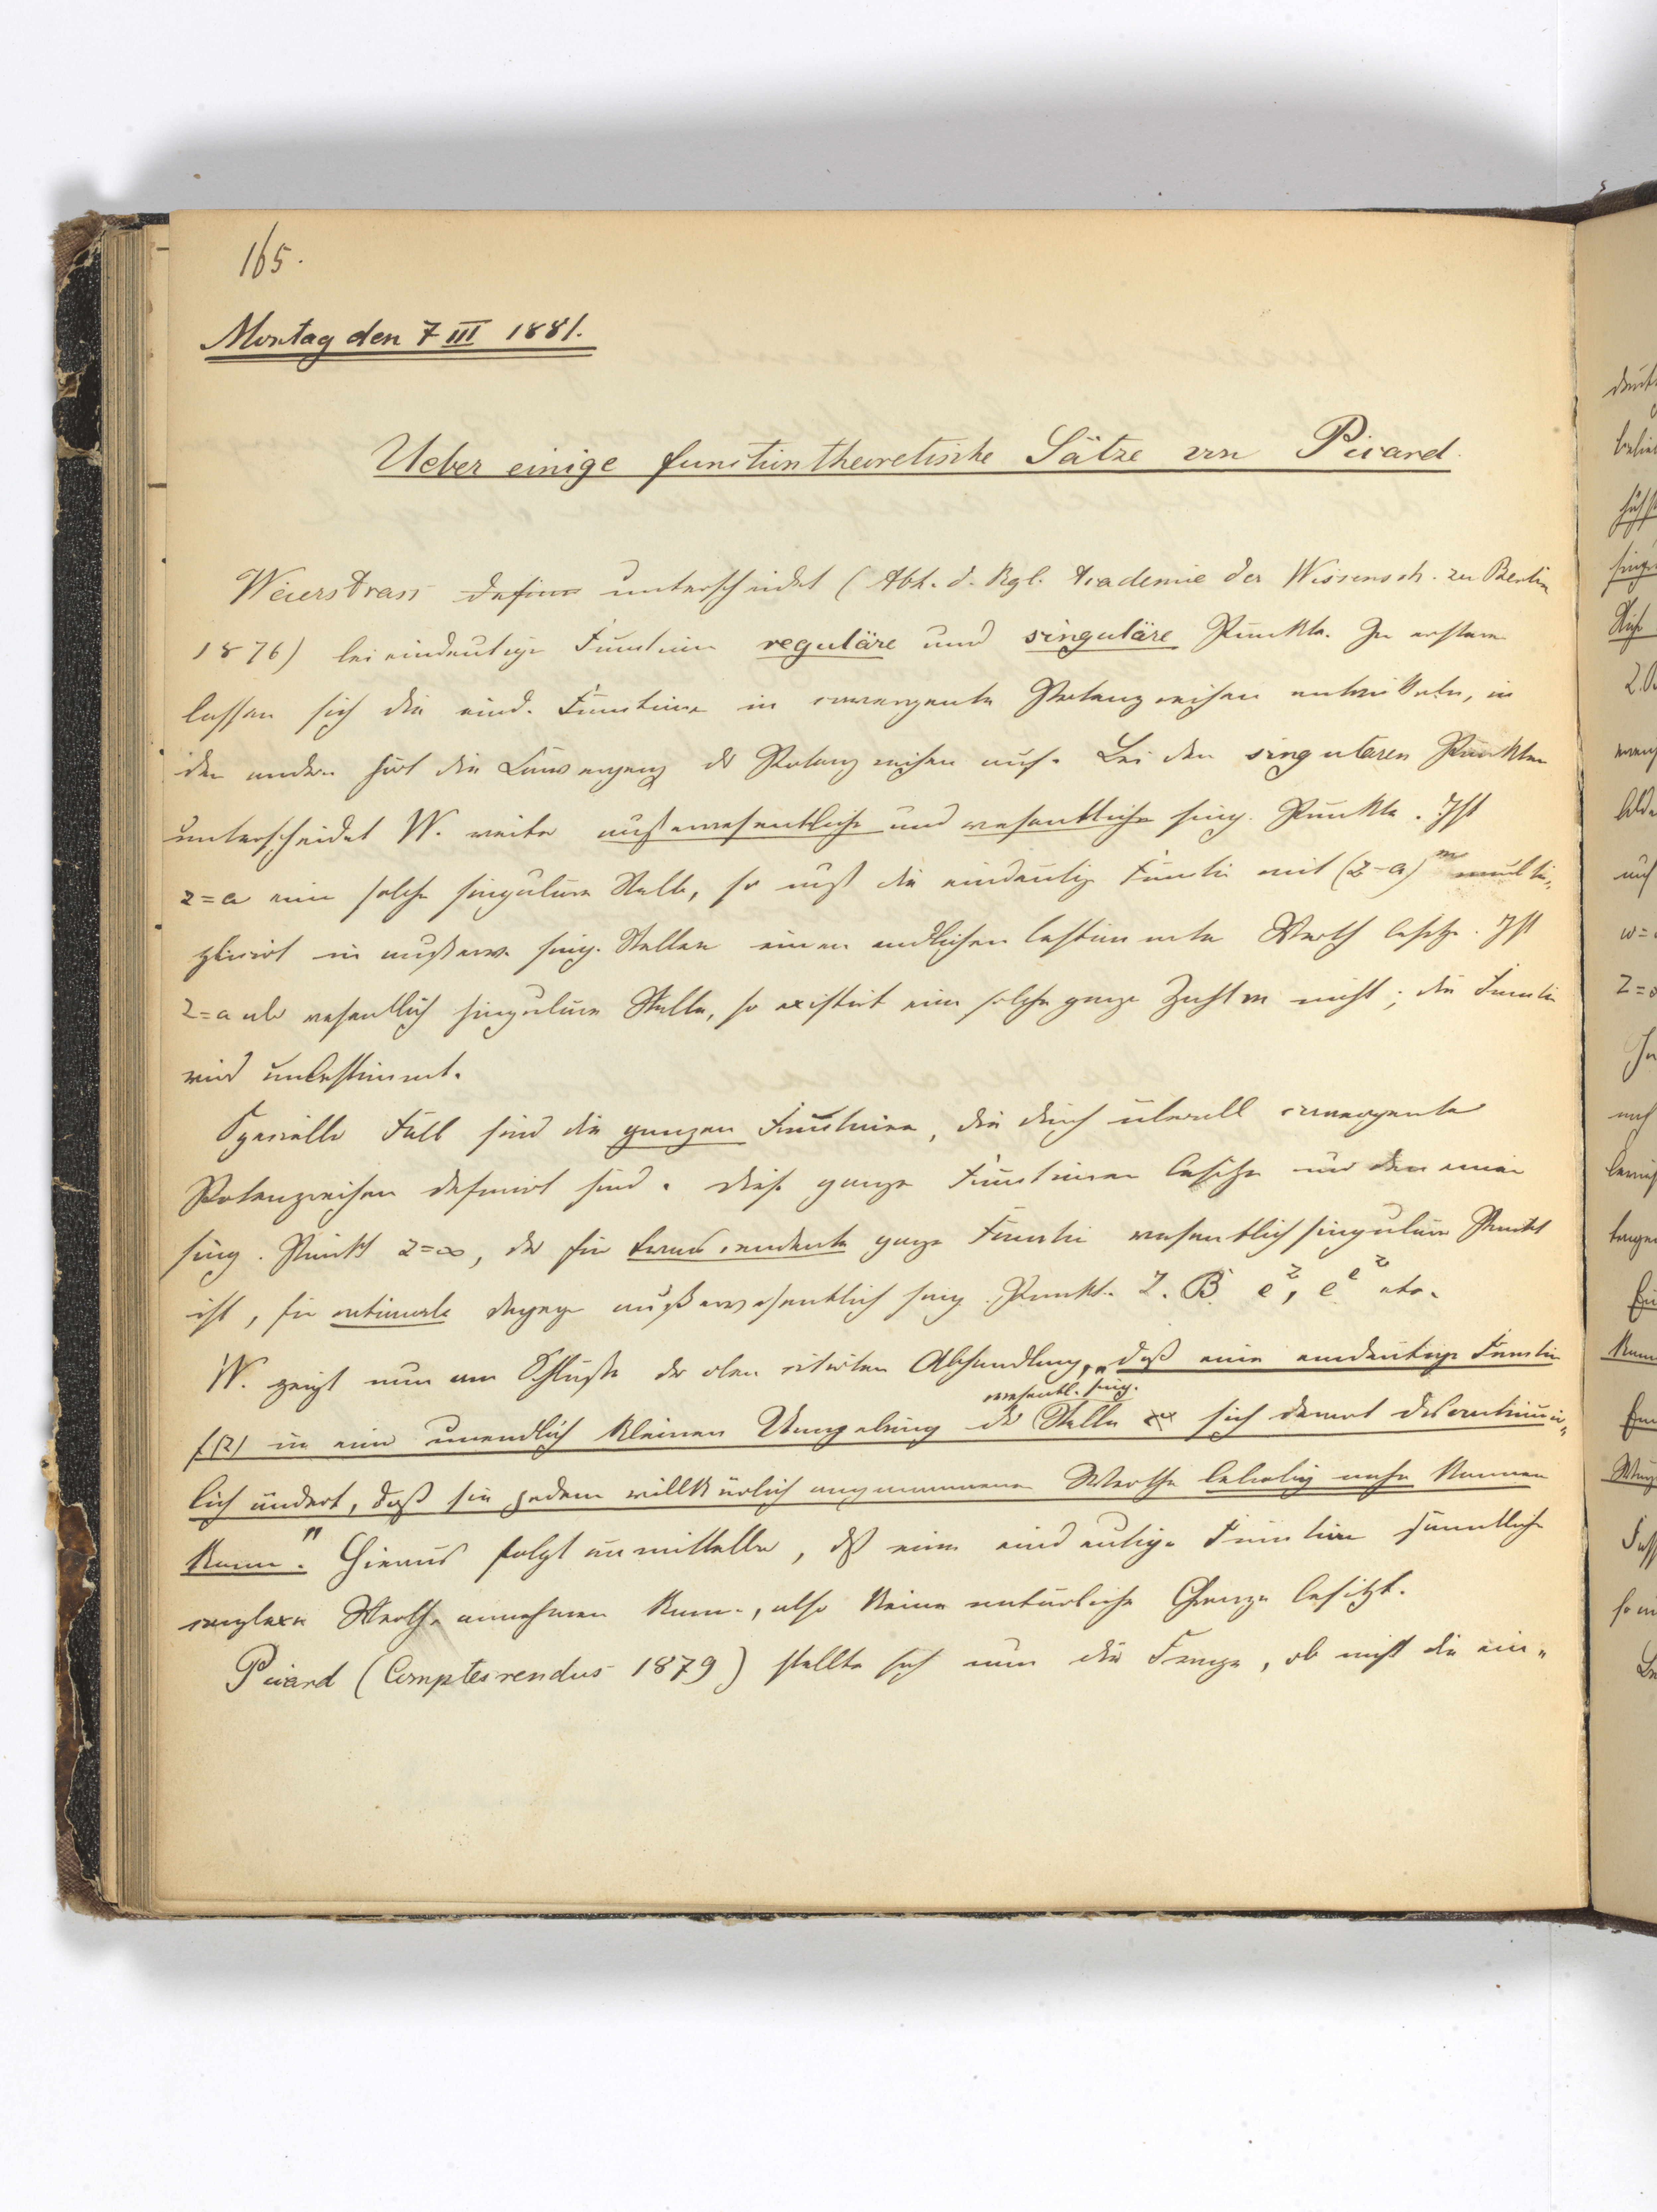 165.
Montag den 7 III 1881.
Ueber einige functiontheoretische Sätze von Picard.
Weierstrass unterscheidet (Abh. d. Kgl. Academie der Wissensch. zu Berlin
1876) bei eindeutige Functionen reguläre und singuläre Punkte. In ersteren
lassen sich die eind. Functionen in convergente Potenzreihen entwickeln, in
den andern hört die Convergenz der Potenzreihen auf. Bei den singulären Punkten
unterscheidet W. weiter außerwesentliche und wesentliche sing. Punkte. Ist
z=a eine solche singuläre Stelle, so muß die eindeutige Function mit (z-a)^m multi„
plicirt in außerw. sing. Stellen einen endlichen bestimmten Werth besitzen. Ist
z=a als wesentlich singuläre Stelle, so existirt eine solche ganze Zahl m nicht; die Function
wird unbestimmt.
Specielle Fäll sind die ganzen Functionen, die durch überall convergente
Potenzreihen definirt sind. Diese ganze Functionen besitzen nur den einen
sing. Punkt z=∞, der für transcendente ganze Function wesentlich singuläre Punkt
ist, für rationale dagegen außerwesentlich sing. Punkt. Z. B. e^z, e^{e^z} etc.
W. zeigt nun am Schluße der oben citirten Abhandlung, „daß eine eindeutige Function
wesentl. sing.
f(z) in einer unendlich kleinen Umgebung der Stelle sich derart discontinuir„
lich ändert, daß sie jedem willkürlich angenommenen Werthe beliebig nahe kommen
kann." Hieraus folgt unmittelbar, dß eine eindeutige Function sämmtliche
complexe Werthe annehmen kann, also keine natürliche Grenze besitzt.
Picard (Comptes rendus 1879) stellte sich nun die Frage, ob nicht die ein„